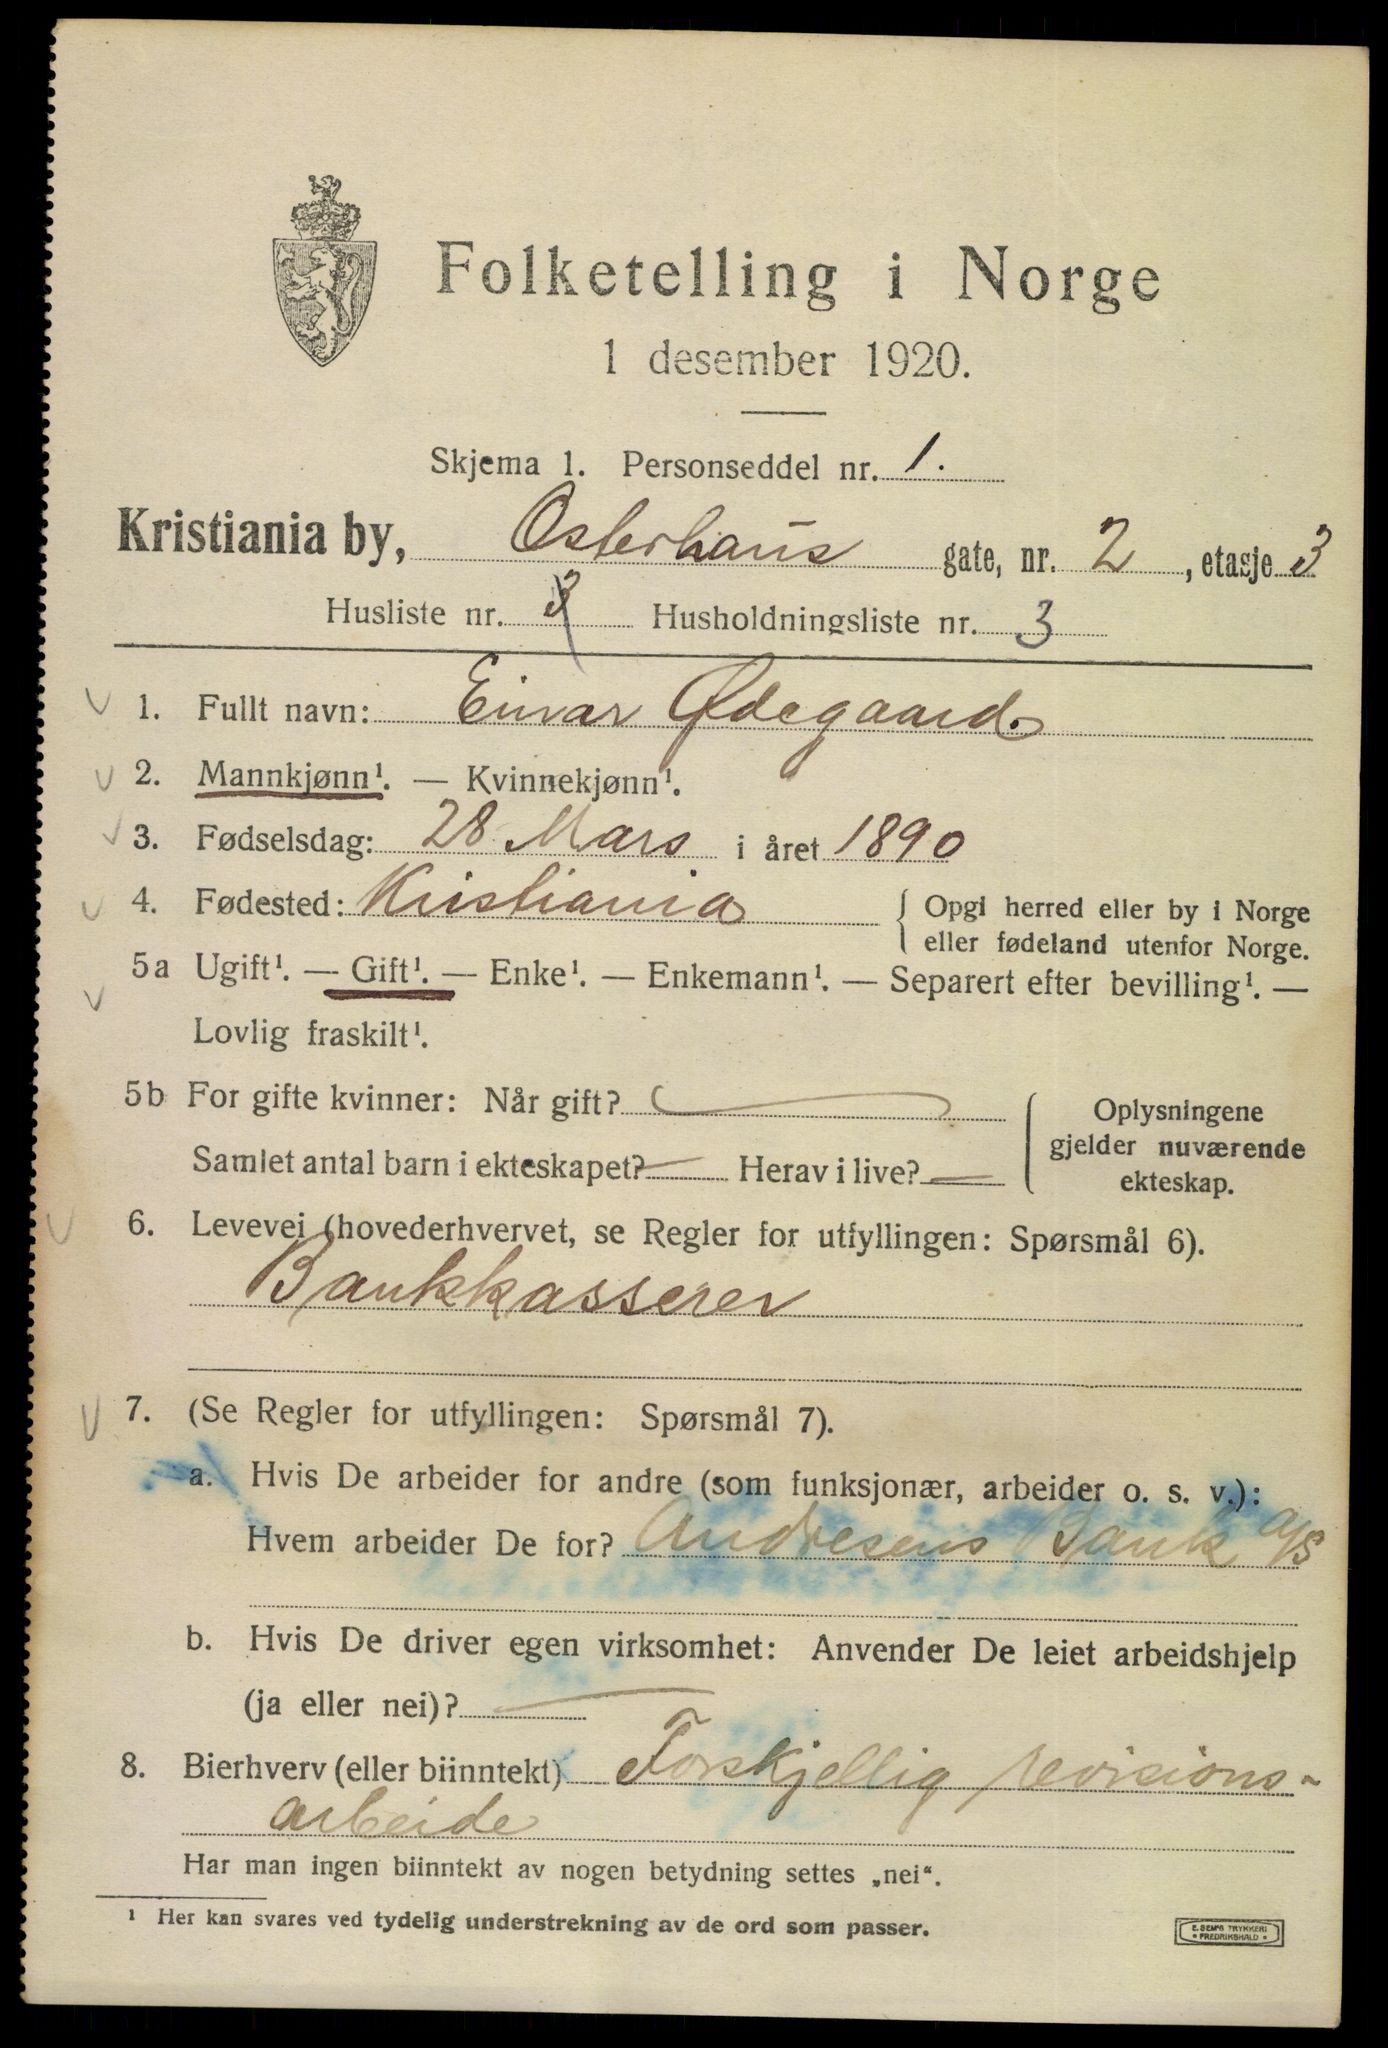 Folketelling i Norge
1 desember 1920.
Skjema 1. Personseddel nr. 1.
Kristiania by, Osterhaus gate, nr. 2, etasje 3
Husliste nr. 3 Husholdningsliste nr. 3
1. Fullt navn: Einar Ødegaard.
2. Mannkjønn¹. — Kvinnekjønn¹.
3. Fødselsdag: 28 Mars i året 1890
4. Fødested: Kristiania { Opgi herred eller by i Norge
eller fødeland utenfor Norge.
5a Ugift¹. — Gift¹. — Enke¹. — Enkemann¹. — Separert efter bevilling¹. —
Lovlig fraskilt¹.
5b For gifte kvinner: Når gift? — { Oplysningene
gjelder nuværende
ekteskap.
Samlet antal barn i ekteskapet? — Herav i live? —
6. Levevei (hovederhvervet, se Regler for utfyllingen: Spørsmål 6).
Bankkasserer
7. (Se Regler for utfyllingen: Spørsmål 7).
a. Hvis De arbeider for andre (som funksjonær, arbeider o. s. v.):
Hvem arbeider De for? Andresens Bank a/s
b. Hvis De driver egen virksomhet: Anvender De leiet arbeidshjelp
(ja eller nei)? —
8. Bierhverv (eller biinntekt) Forskjellig revisions-
arbeide
Har man ingen biinntekt av nogen betydning settes „nei“.
¹ Her kan svares ved tydelig understrekning av de ord som passer.
E. SEM'S TRYKKERI
• FREDRIKSHALD •